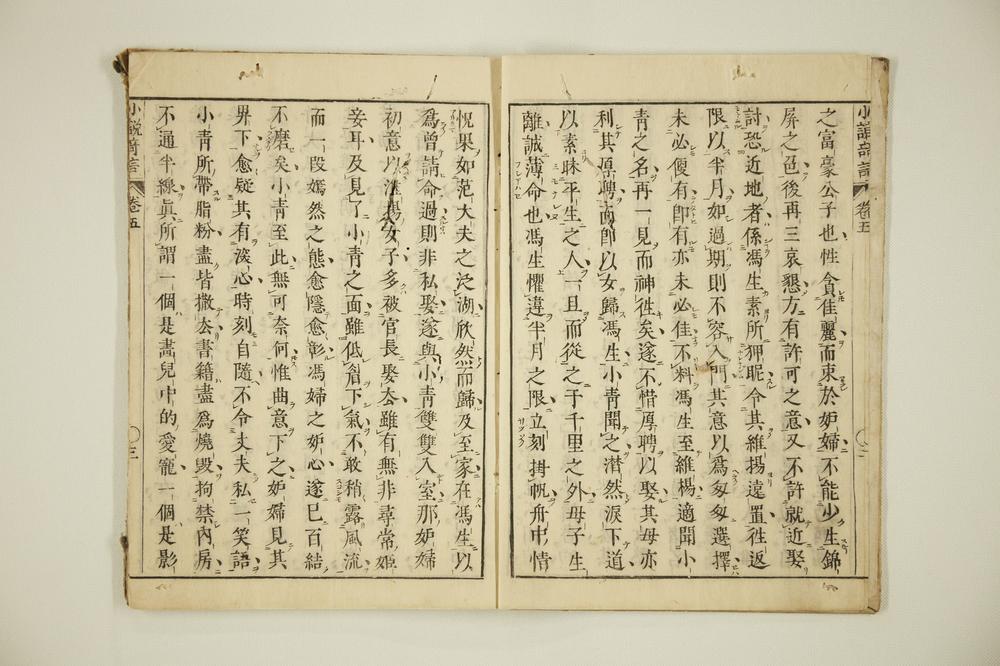 之富豪公子也性貪佳麗而束於妒婦不能少生錦
屏之色後再三哀懇方有許可之意又不許就近娶
討恐近地者係馮生素所狎昵令其維揚遠置徃返
限以半月如過期則不容入門其意以爲匆匆選擇
未必便有卽有亦未必佳不料馮生至維楊適聞小
青之名再一見而神徃矣遂不惜厚聘以娶其母亦
利其厚聘而卽以女歸馮生小青聞之潸然淚下道
以素昧平生之人一旦而從之于千里之外母子生
離誠薄命也馮生懼違半月之限立刻掛帆舟中情
怳果如范大夫之泛湖欣然而歸及至家在馮生以
爲曾請命過則非私娶遂與小青雙雙入室那妒婦
初意以淮揚女子多被官長娶去雖有無非尋常姬
妾耳及見了小青之面雖低眉下氣不敢稍露風流
而一段嫣然之態愈隱愈彰馮婦之妒心遂已百結
不磨矣小青至此無可奈何惟曲意下之妒婦見其
畀下愈疑其有深心時刻自隨不令丈夫私一笑語
小青所帶脂粉盡皆撤去書籍盡爲燒毀拘禁內房
不通半線眞所謂一個是畵兒中的愛寵一個是影
卷五
三